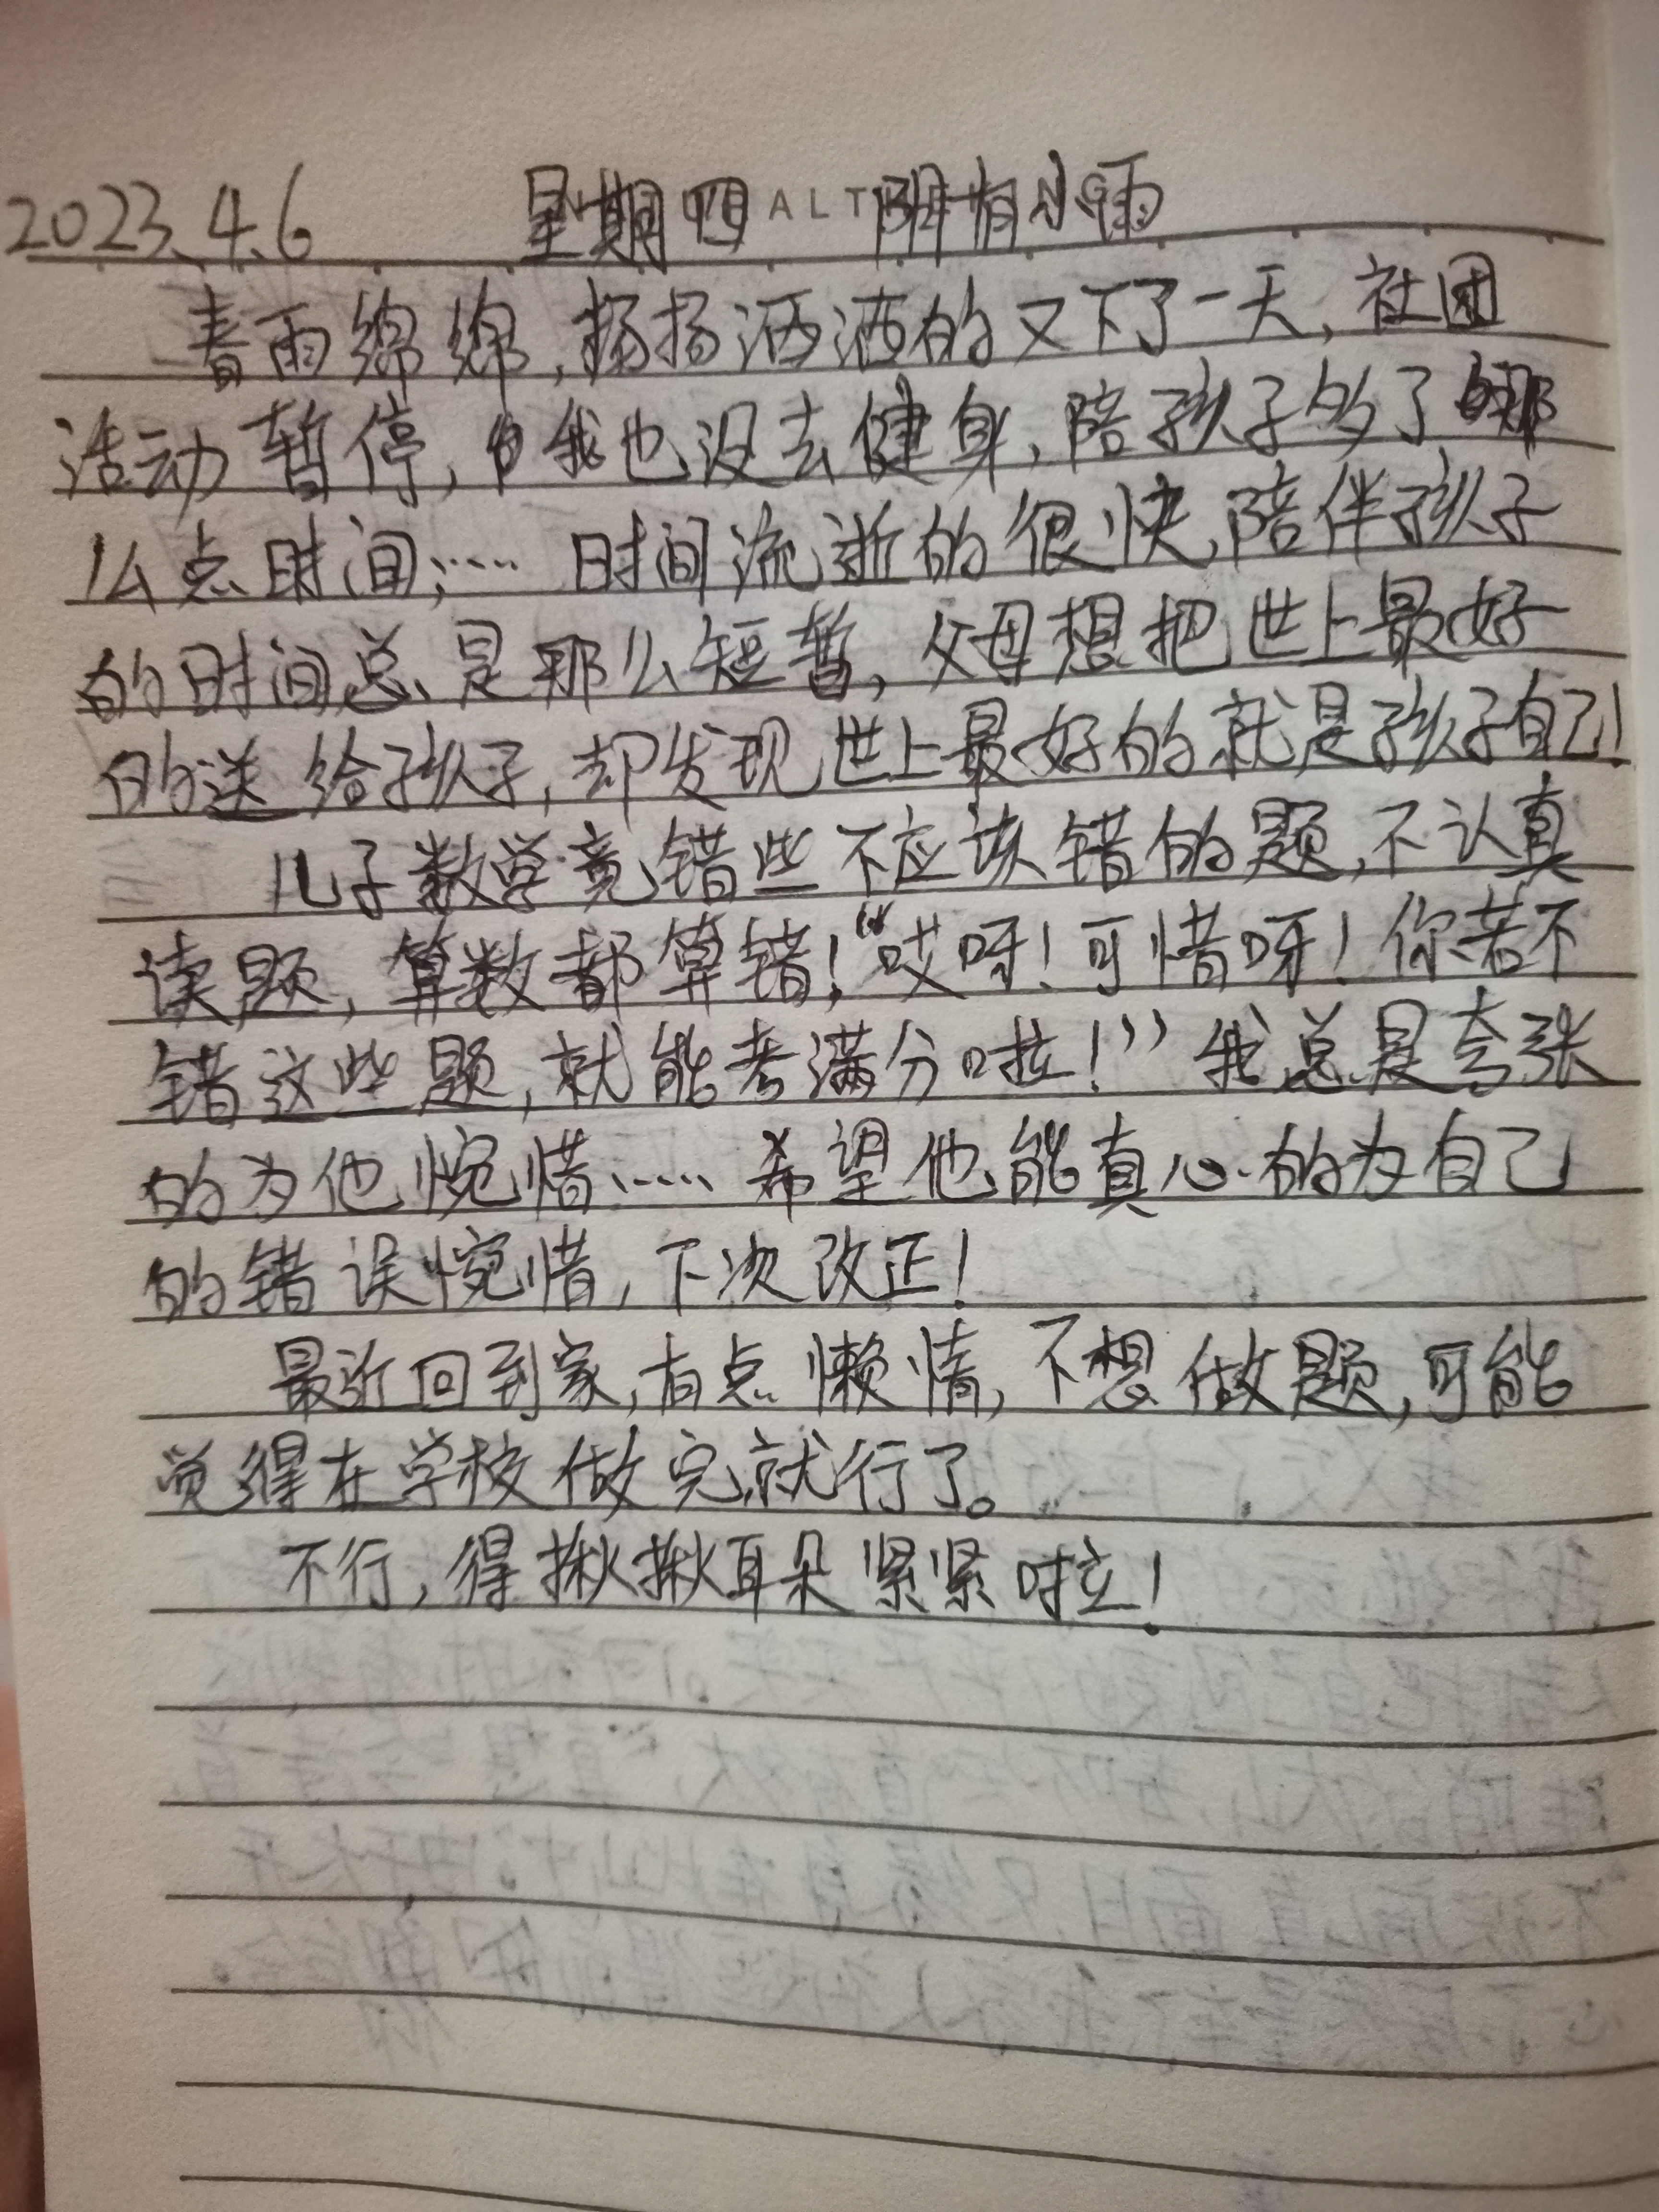 2023.4.6 星期四 阴有小雨
春雨绵绵,扬扬洒洒的又下了一天,社团
活动暂停,我也没去健身,陪孩子的了那
么点时间;…… 时间流逝的很快,陪伴孩子
的时间总是那么短暂,父母想把世上最好
的送给孩子,却发现世上最好的就是孩子自己!
儿子数学竟错些不应该错的题,不认真
读题,算数都算错!“哎呀!可惜呀!你若不
错这些题,就能考满分啦!”我总是夸张
的为他惋惜……希望他能真心的为自己
的错误惋惜,下次改正!
最近回到家,有点懒惰,不想做题,可能
觉得在学校做完就行了。
不行,得揪揪耳朵紧紧啦!